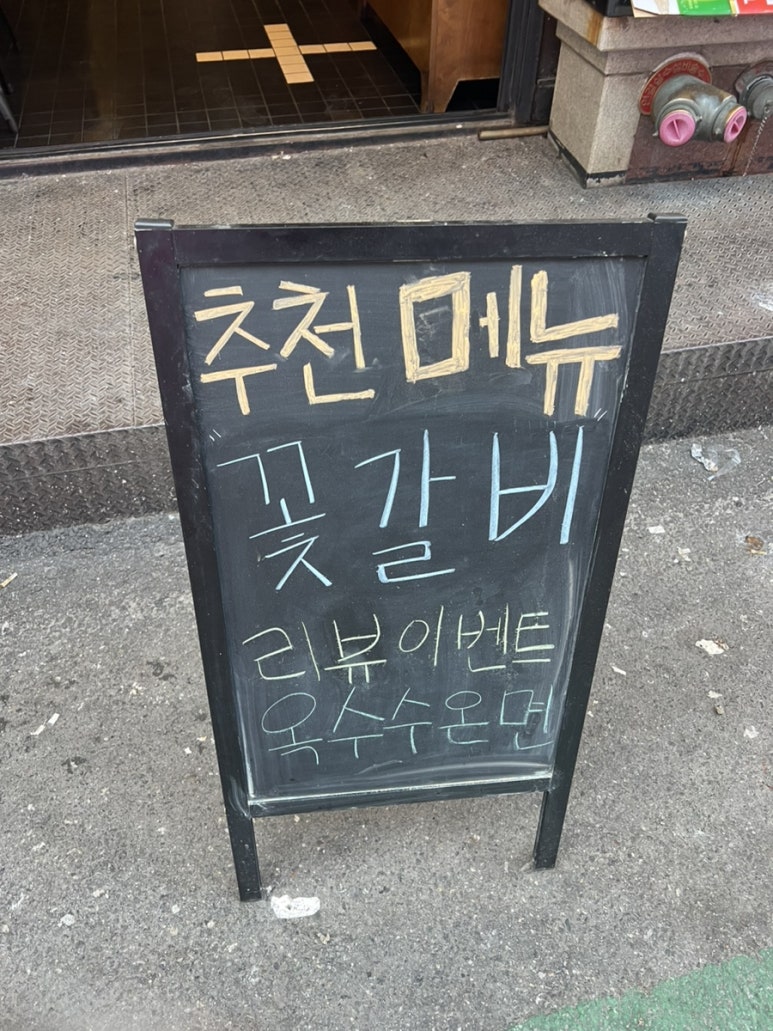 추천 메뉴
" 꽃갈비 "
리뷰이벤트
옥수수온면